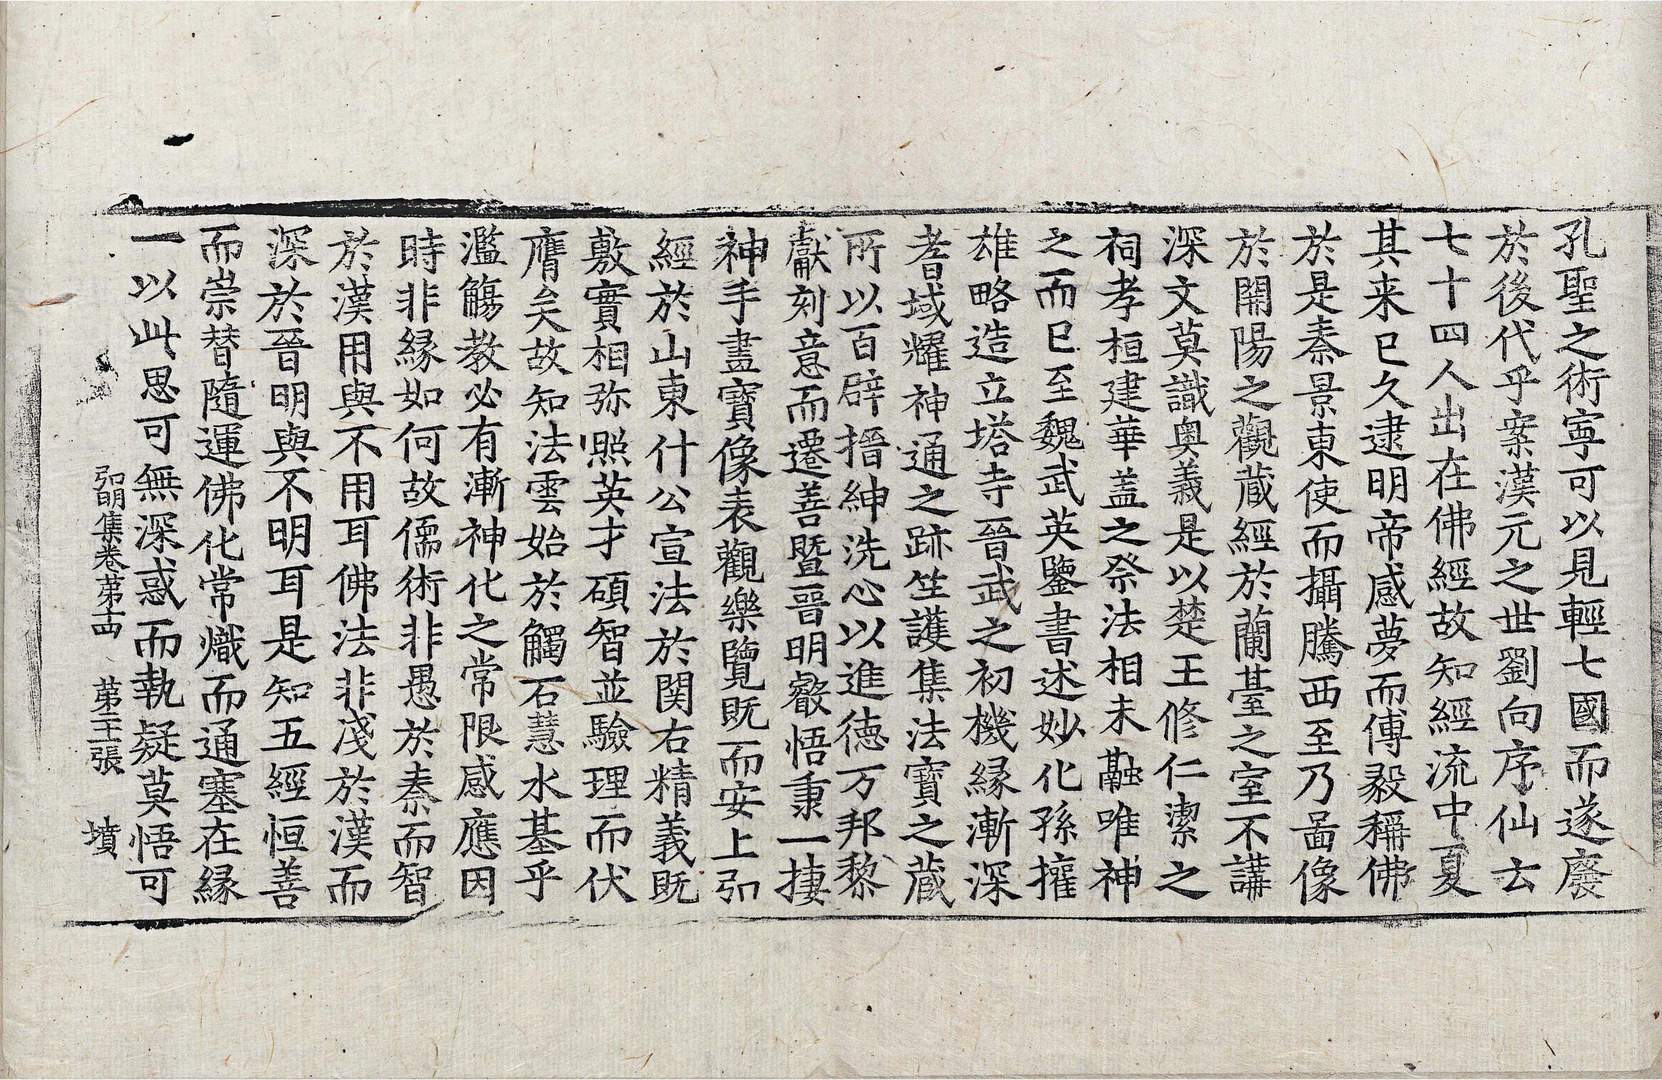 孔聖之術寧可以見輕七國而遂廢
於後代乎案漢元之世劉向序仙云
七十四人出在佛經故知經流中夏
其来已久逮明帝感夢而傅毅稱佛
於是秦景東使而攝騰西至乃啚像
於開陽之觀蔵經於蘭臺之室不講
深文莫識奥義是以楚王修仁潔之
祠孝桓建華盖之祭法相未融唯神
之而已至魏武英鑒書述妙化孫權
雄略造立塔寺晉武之初機緣漸深
耆域耀神通之跡竺護集法寶之蔵
所以百辟搢紳洗心以進德万邦黎
獻刻意而遷善暨晉明叡悟秉一捿
神手畫寶像表觀樂覽既而安上弘
經於山東什公宣法於関右精義既
敷實相弥照英才碩智並驗理而伏
膺矣故知法雲始於觸石慧水基乎
濫觴教必有漸神化之常限感應因
時非緣如何故儒術非愚於秦而智
於漢用與不用耳佛法非淺於漢而
深於晉明與不明耳是知五經恒善
而崇替隨運佛化常熾而通塞在緣
一以此思可無深惑而執疑莫悟可
弘明集卷第十四 第二十張 墳